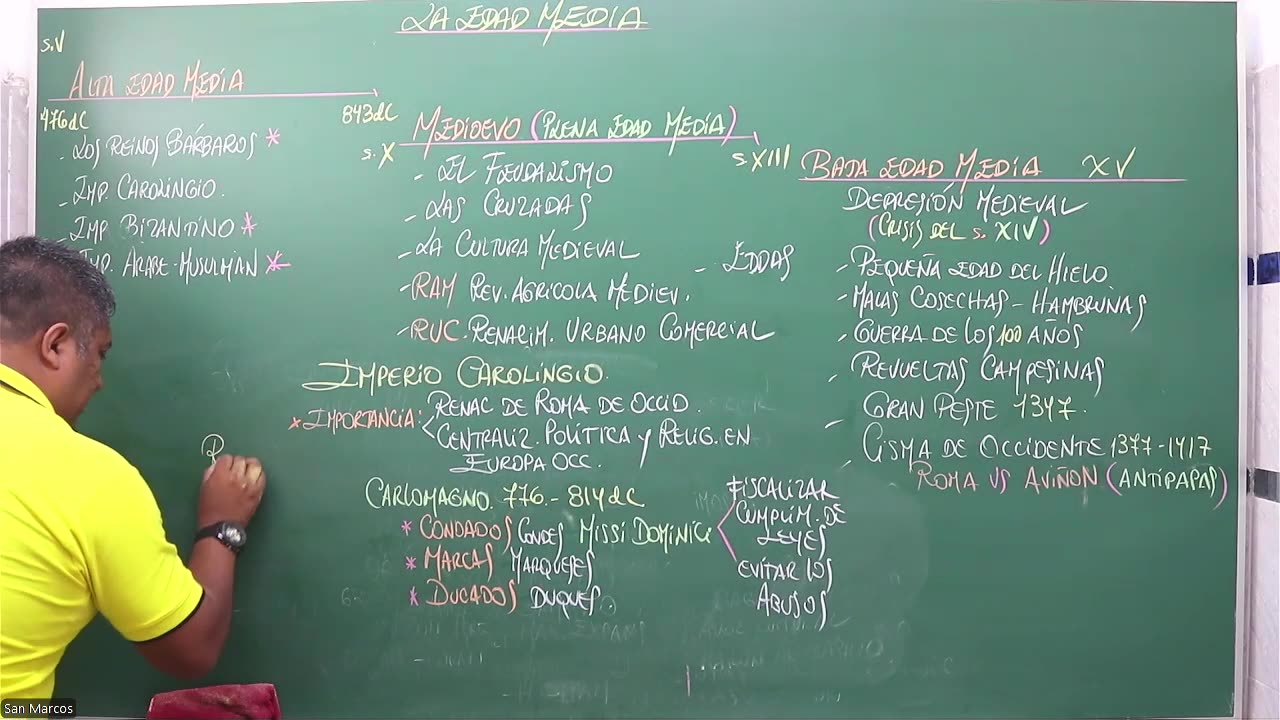 LA EDAD MEDIA
S.V
ALTA EDAD MEDIA
476dC
843dC
- LOS REINOS BÁRBAROS *
- IMP. CAROLINGIO.
- IMP. BIZANTINO *
IMP. ARABE-MUSULMAN *
MEDIOEVO (PLENA EDAD MEDIA)
S. X
S. XIII
- EL FEUDALISMO
- LAS CRUZADAS
- LA CULTURA MEDIEVAL
- EDDAS
- RAM REV. AGRICOLA MEDIEV.
- RUC. RENACIM. URBANO COMERCIAL
BAJA EDAD MEDIA XV
DEPRESIÓN MEDIEVAL
(CRISIS DEL S. XIV)
- PEQUEÑA EDAD DEL HIELO
- MALAS COSECHAS - HAMBRUNAS
- GUERRA DE LOS 100 AÑOS
- REVUELTAS CAMPESINAS
- GRAN PESTE 1347.
- CISMA DE OCCIDENTE 1377-1417
ROMA VS AVIÑON (ANTIPAPAS)
IMPERIO CAROLINGIO.
* IMPORTANCIA: RENAC DE ROMA DE OCCID.
CENTRALIZ. POLÍTICA Y RELIG. EN
EUROPA OCC.
CARLOMAGNO. 776.- 814dC
* CONDADOS CONDES MISSI DOMINICI
* MARCAS MARQUESES
* DUCADOS DUQUES.
FISCALIZAR
CUMPLIM. DE
LEYES
EVITAR LOS
ABUSOS
San Marcos